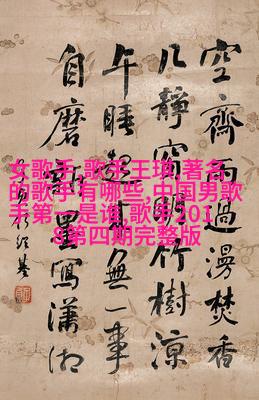 空齋雨過漫焚香
几靜窗竹樹涼
午睡無一事
自磨墨寫瀟湘
女歌手,歌手王琪,著名
的歌手有哪些,中国男歌
手第一是谁,歌手201
8第四期完整版